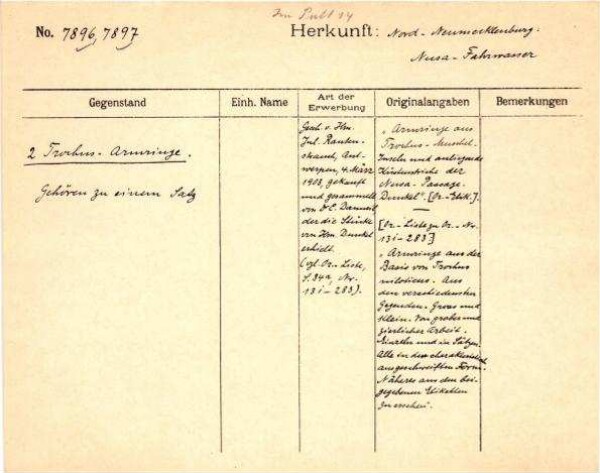 Im Pult 14
No. 7896, 7897
Herkunft: Nord-Neumecklenburg.
Nusa-Fahrwasser
Gegenstand
Einh. Name
Art der
Erwerbung
Originalangaben
Bemerkungen
2 Trochus-Armringe.
Gehören zu einem Satz
Gesch. v. Hrn.
Jul. Rauten-
strauch, Ant-
werpen, 4. März
1908, gekauft
und gesammelt
von Dr. E.
der die Stücke
von Hrn Dunkel
erhielt.
(vgl. Or.-Liste,
S. 34a, Nr.
13 i-283).
"Armringe aus
Trochus-Muschel.
Inseln und anliegende
Küstenstriche der
Nusa-Passage.
Dunkel". [Or.-Etik.].
[Or.-Liste zu Or.-Nr.
13 i-283]
"Armringe aus der
Basis von Trochus
niloticus. Aus
den verschiedensten
Gegenden. Gross und
klein. Von grober und
zierlicher Arbeit.
Einzeln und in Sätzen.
Alle in der charakteristisch
ausgeschweiften Form.
Näheres aus den bei-
gegebenen Etiketten
zu ersehen".